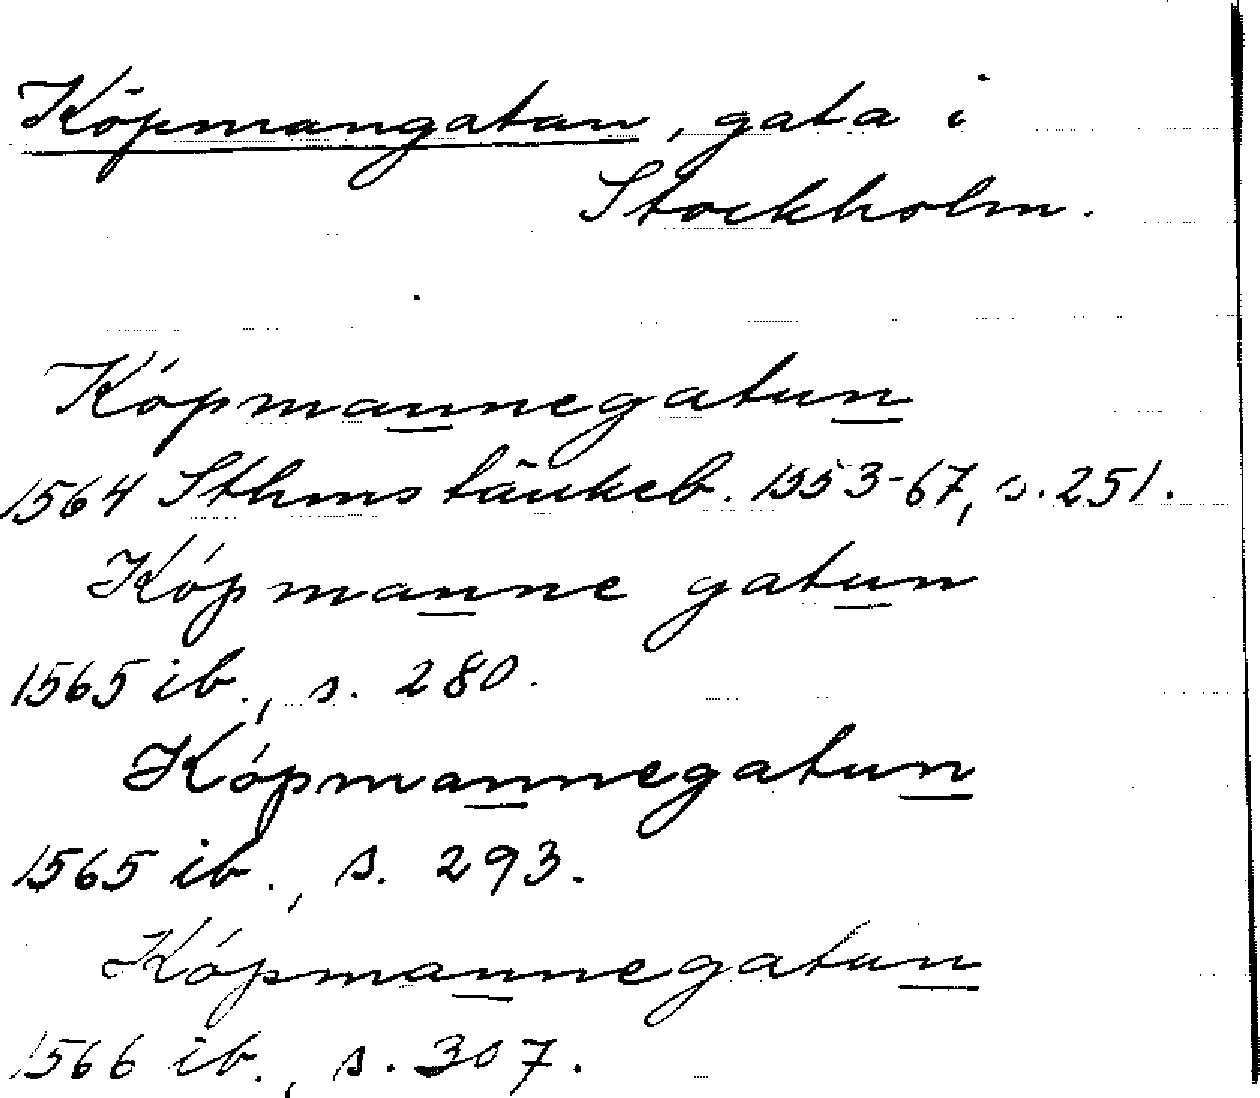 Köpmangatan, gata i
Stockholm.
Kópmannegatun
1564 Sthms tänkeb. 1553-67, s. 251.
Kópmanne gatun
1565 ib., s. 280.
Kópmannegatun
1565 ib., s. 293.
Kópmannegatun
1566 ib., s. 307.